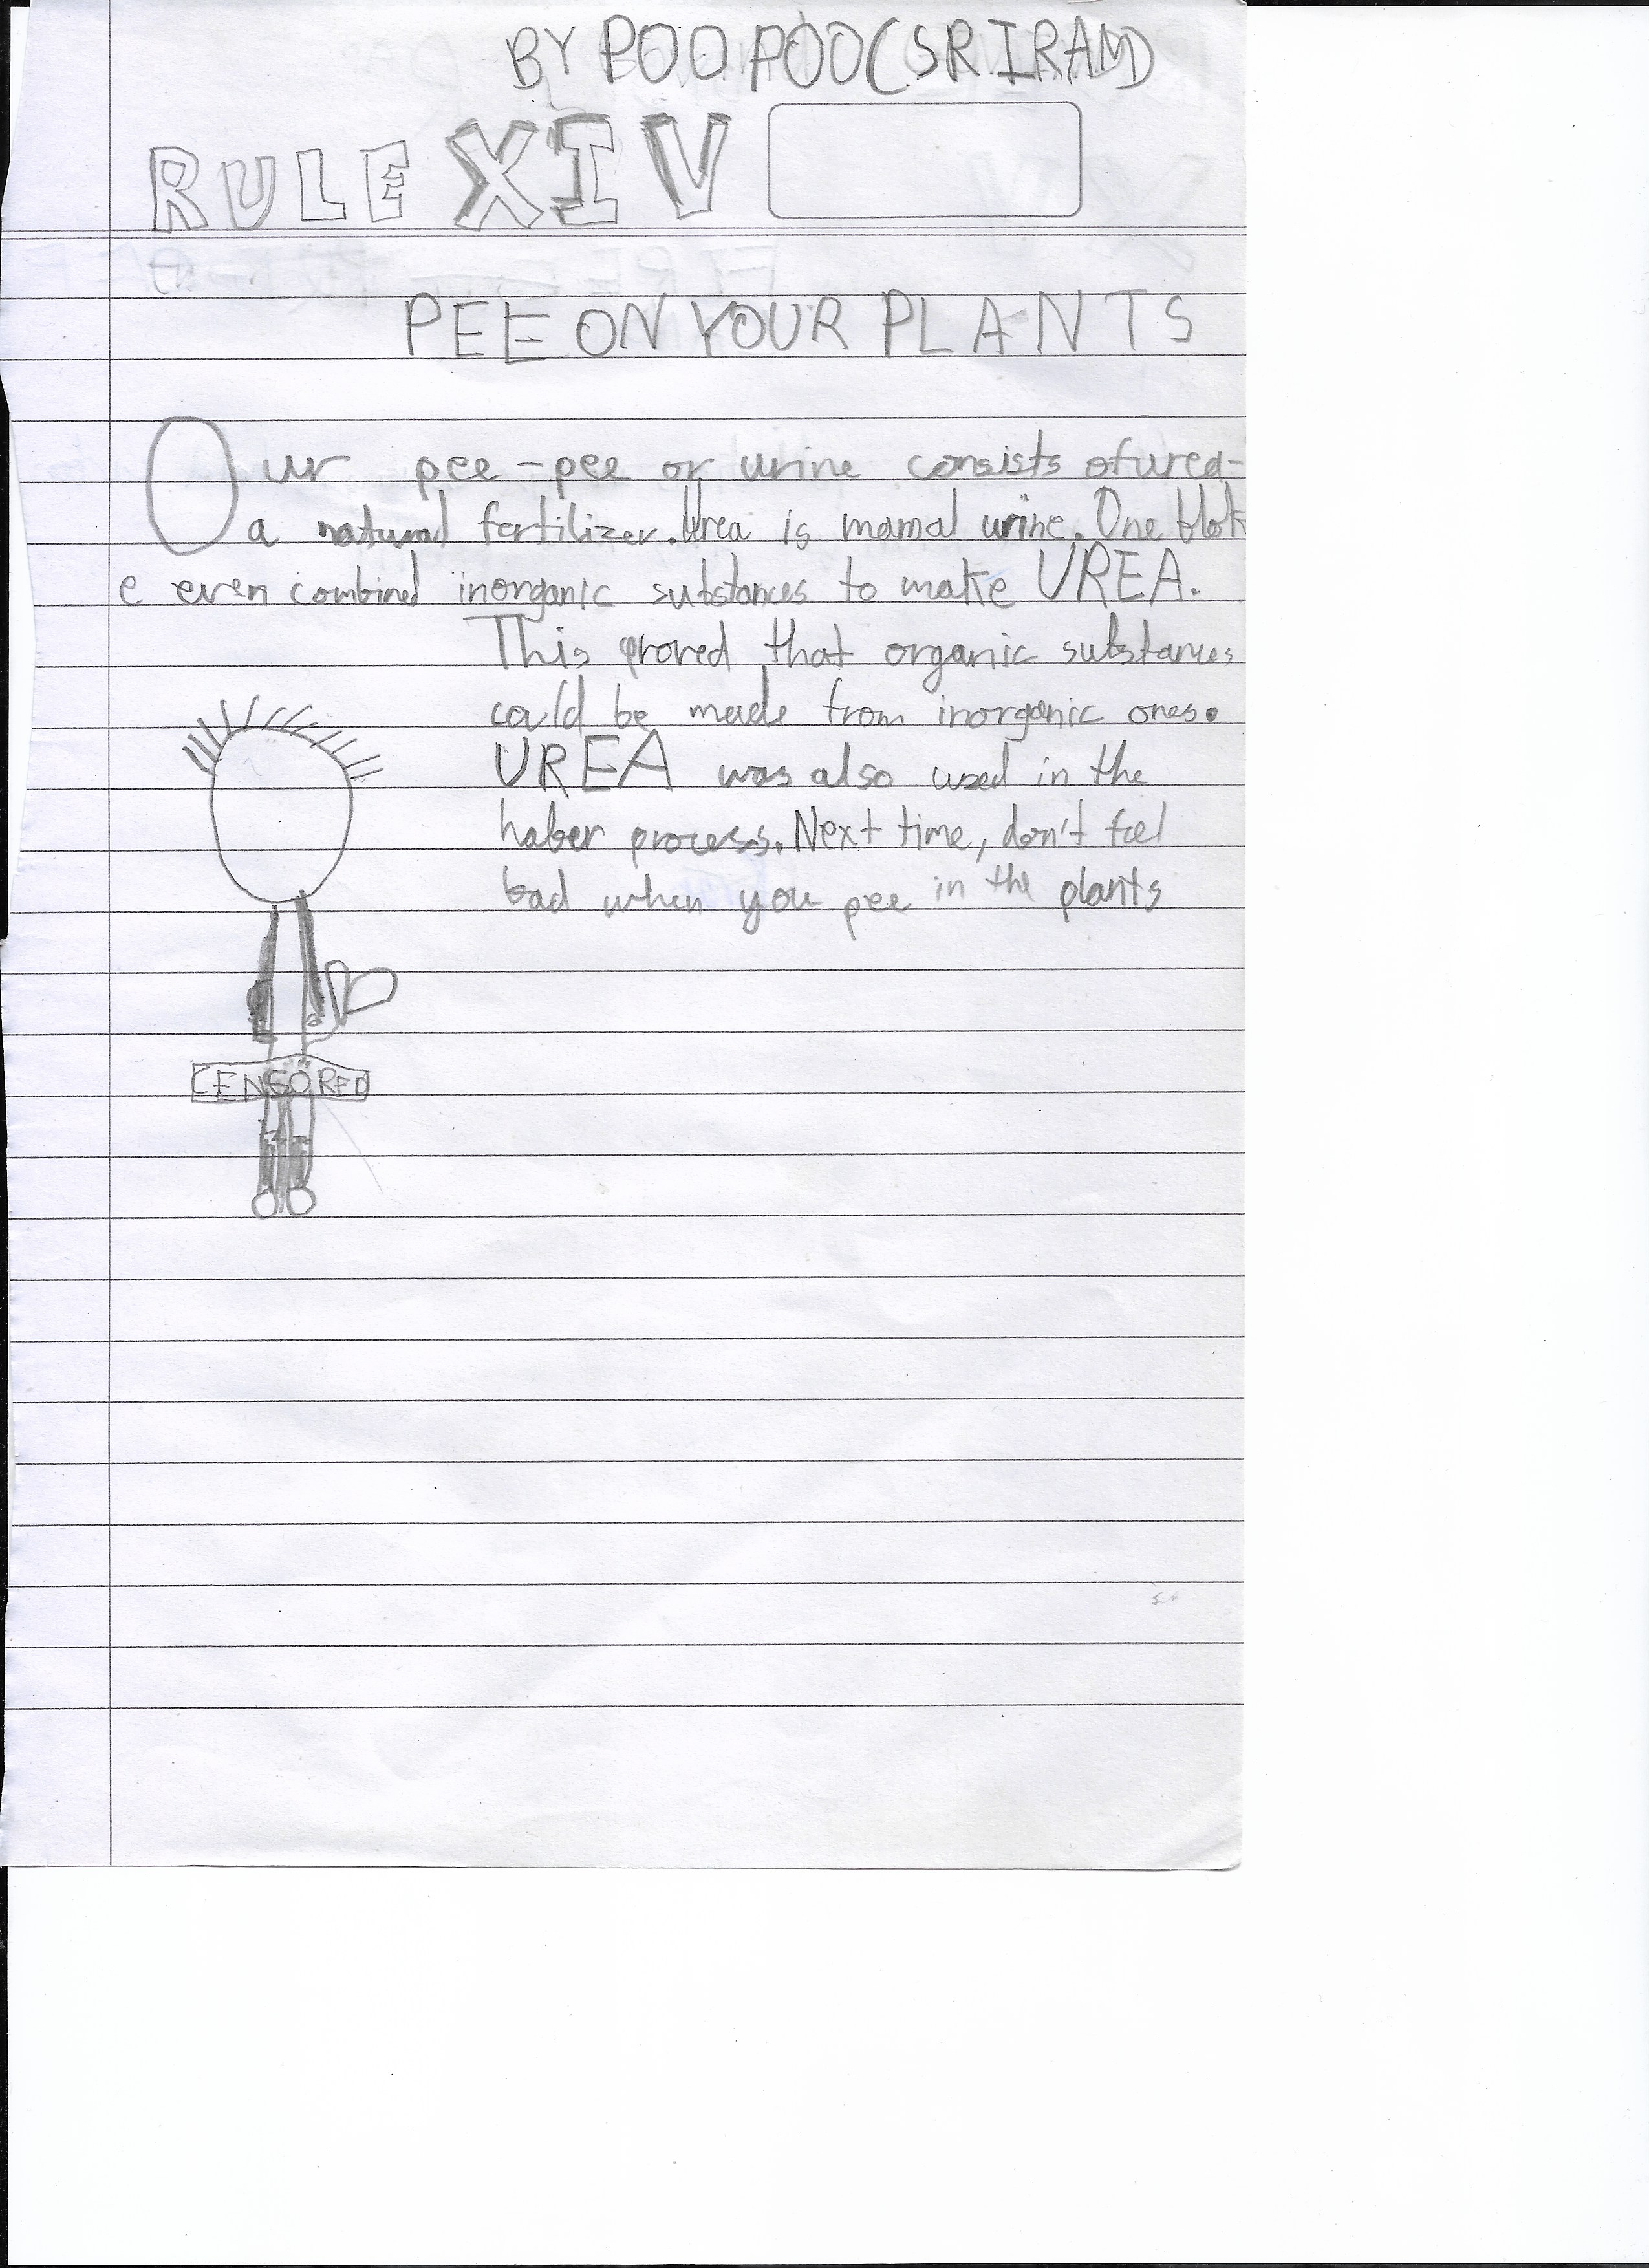 BY POO POO (SRIRAM)
RULE XIV
PEE ON YOUR PLANTS
Our pee-pee or urine consists of urea-
a natural fertilizer. Urea is mamal urine. One blok
e even combined inorganic substances to make UREA.
This proved that organic substances
could be made from inorganic ones.
UREA was also used in the
haber process. Next time, don't feel
bad when you pee in the plants
CENSORED